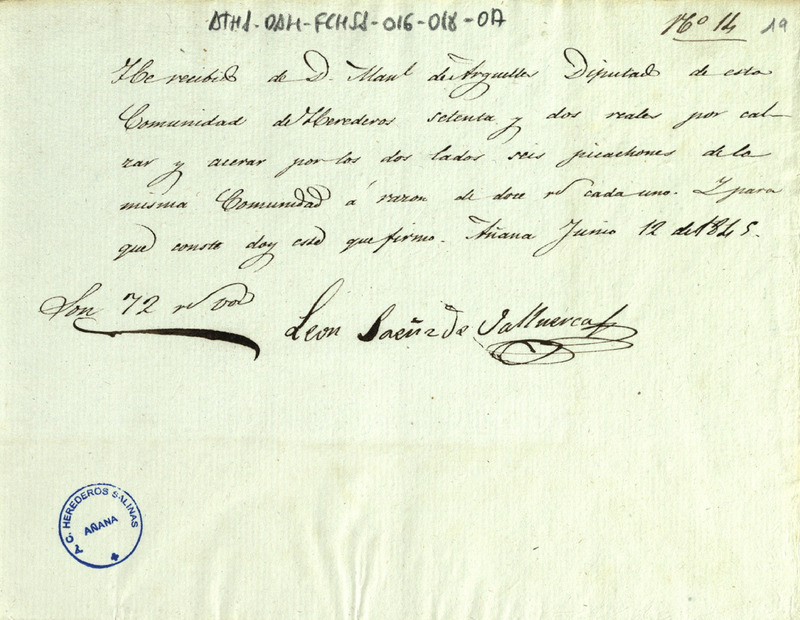 ATHS-DAH-FCHSS-016-018-07
Nº 14
19
He recibido de D. Manl. de Arguelles Diputado de esta
Comunidad de Herederos setenta y dos reales por cal-
zar y acerar por los dos lados seis picachones de la
misma Comunidad á razon de doce rs cada uno. Y para
que conste doy este que firmo. Añana Junio 12 de 1845.
Son 72 rs von
Leon Saenz de
A. C. HEREDEROS SALINAS
AÑANA